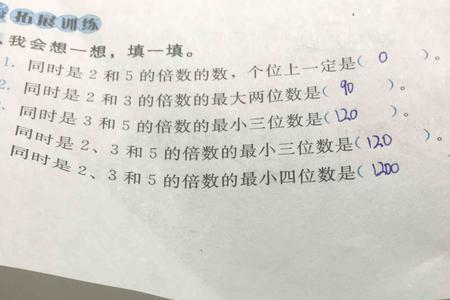 拓展训练
、我会想一想，填一填。
1. 同时是2和5的倍数的数，个位上一定是( 0 )。
2. 同时是2和3的倍数的最大两位数是( 90 )。
同时是3和5的倍数的最小三位数是( 120 )。
同时是2、3和5的倍数的最小三位数是( 120 )。
同时是2、3和5的倍数的最小四位数是( 1200